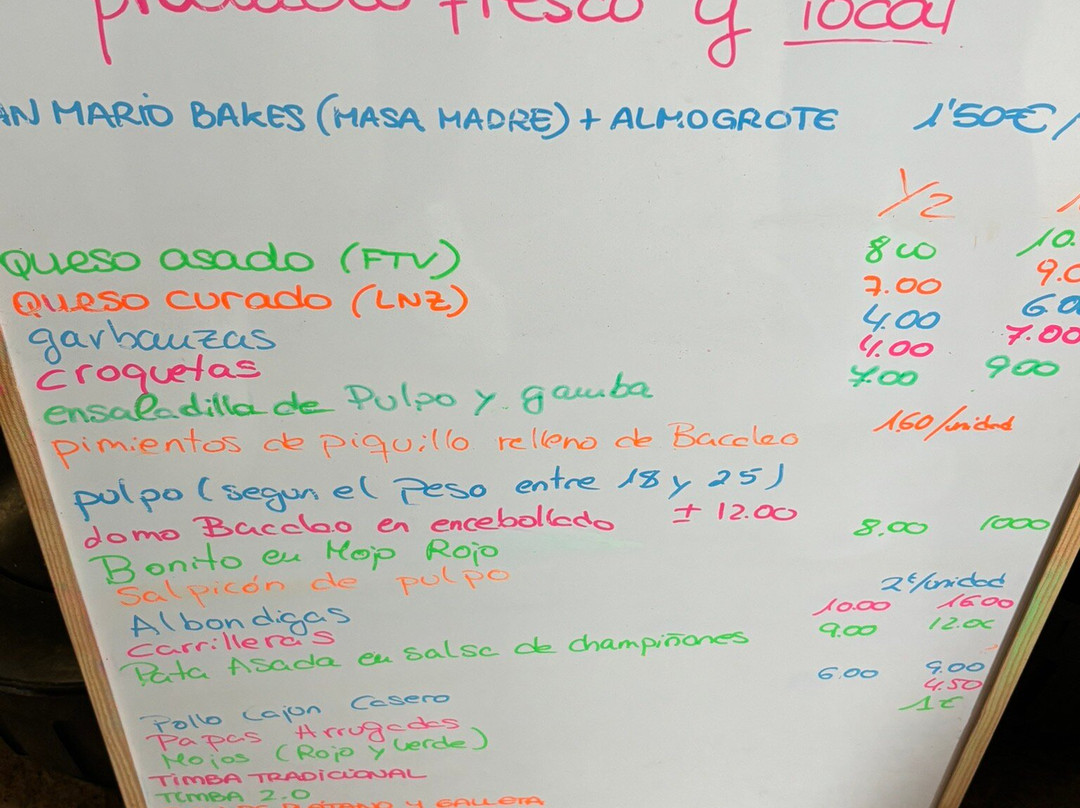 producto fresco y local
MARIO BAKES (MASA MADRE) + ALMOGROTE 1'50€/
1/2
Queso asado (FTV) 8.00 10.
Queso curado (LNZ) 7.00 9.0
garbanzas 4.00 6.0
croquetas 4.00 7.00
ensaladilla de Pulpo y gamba 7.00 900
pimientos de piquillo relleno de Bacalao 1.60/unidad
pulpo (segun el Peso entre 18 y 25)
Lomo Bacalao en encebollado ± 12.00
Bonito en Mojo Rojo 8.00 1000
Salpicón de pulpo
Albondigas 2€/unidad
Carrilleras 10.00 16.00
Pata Asada en salsa de champiñones 9.00 12.00
Pollo Cajun Casero 6.00 9.00
Papas Arrugadas 4.50
Mojos (Rojo y Verde) 1€
TIMBA TRADICIONAL
TIMBA 2.0
Y GALLETA